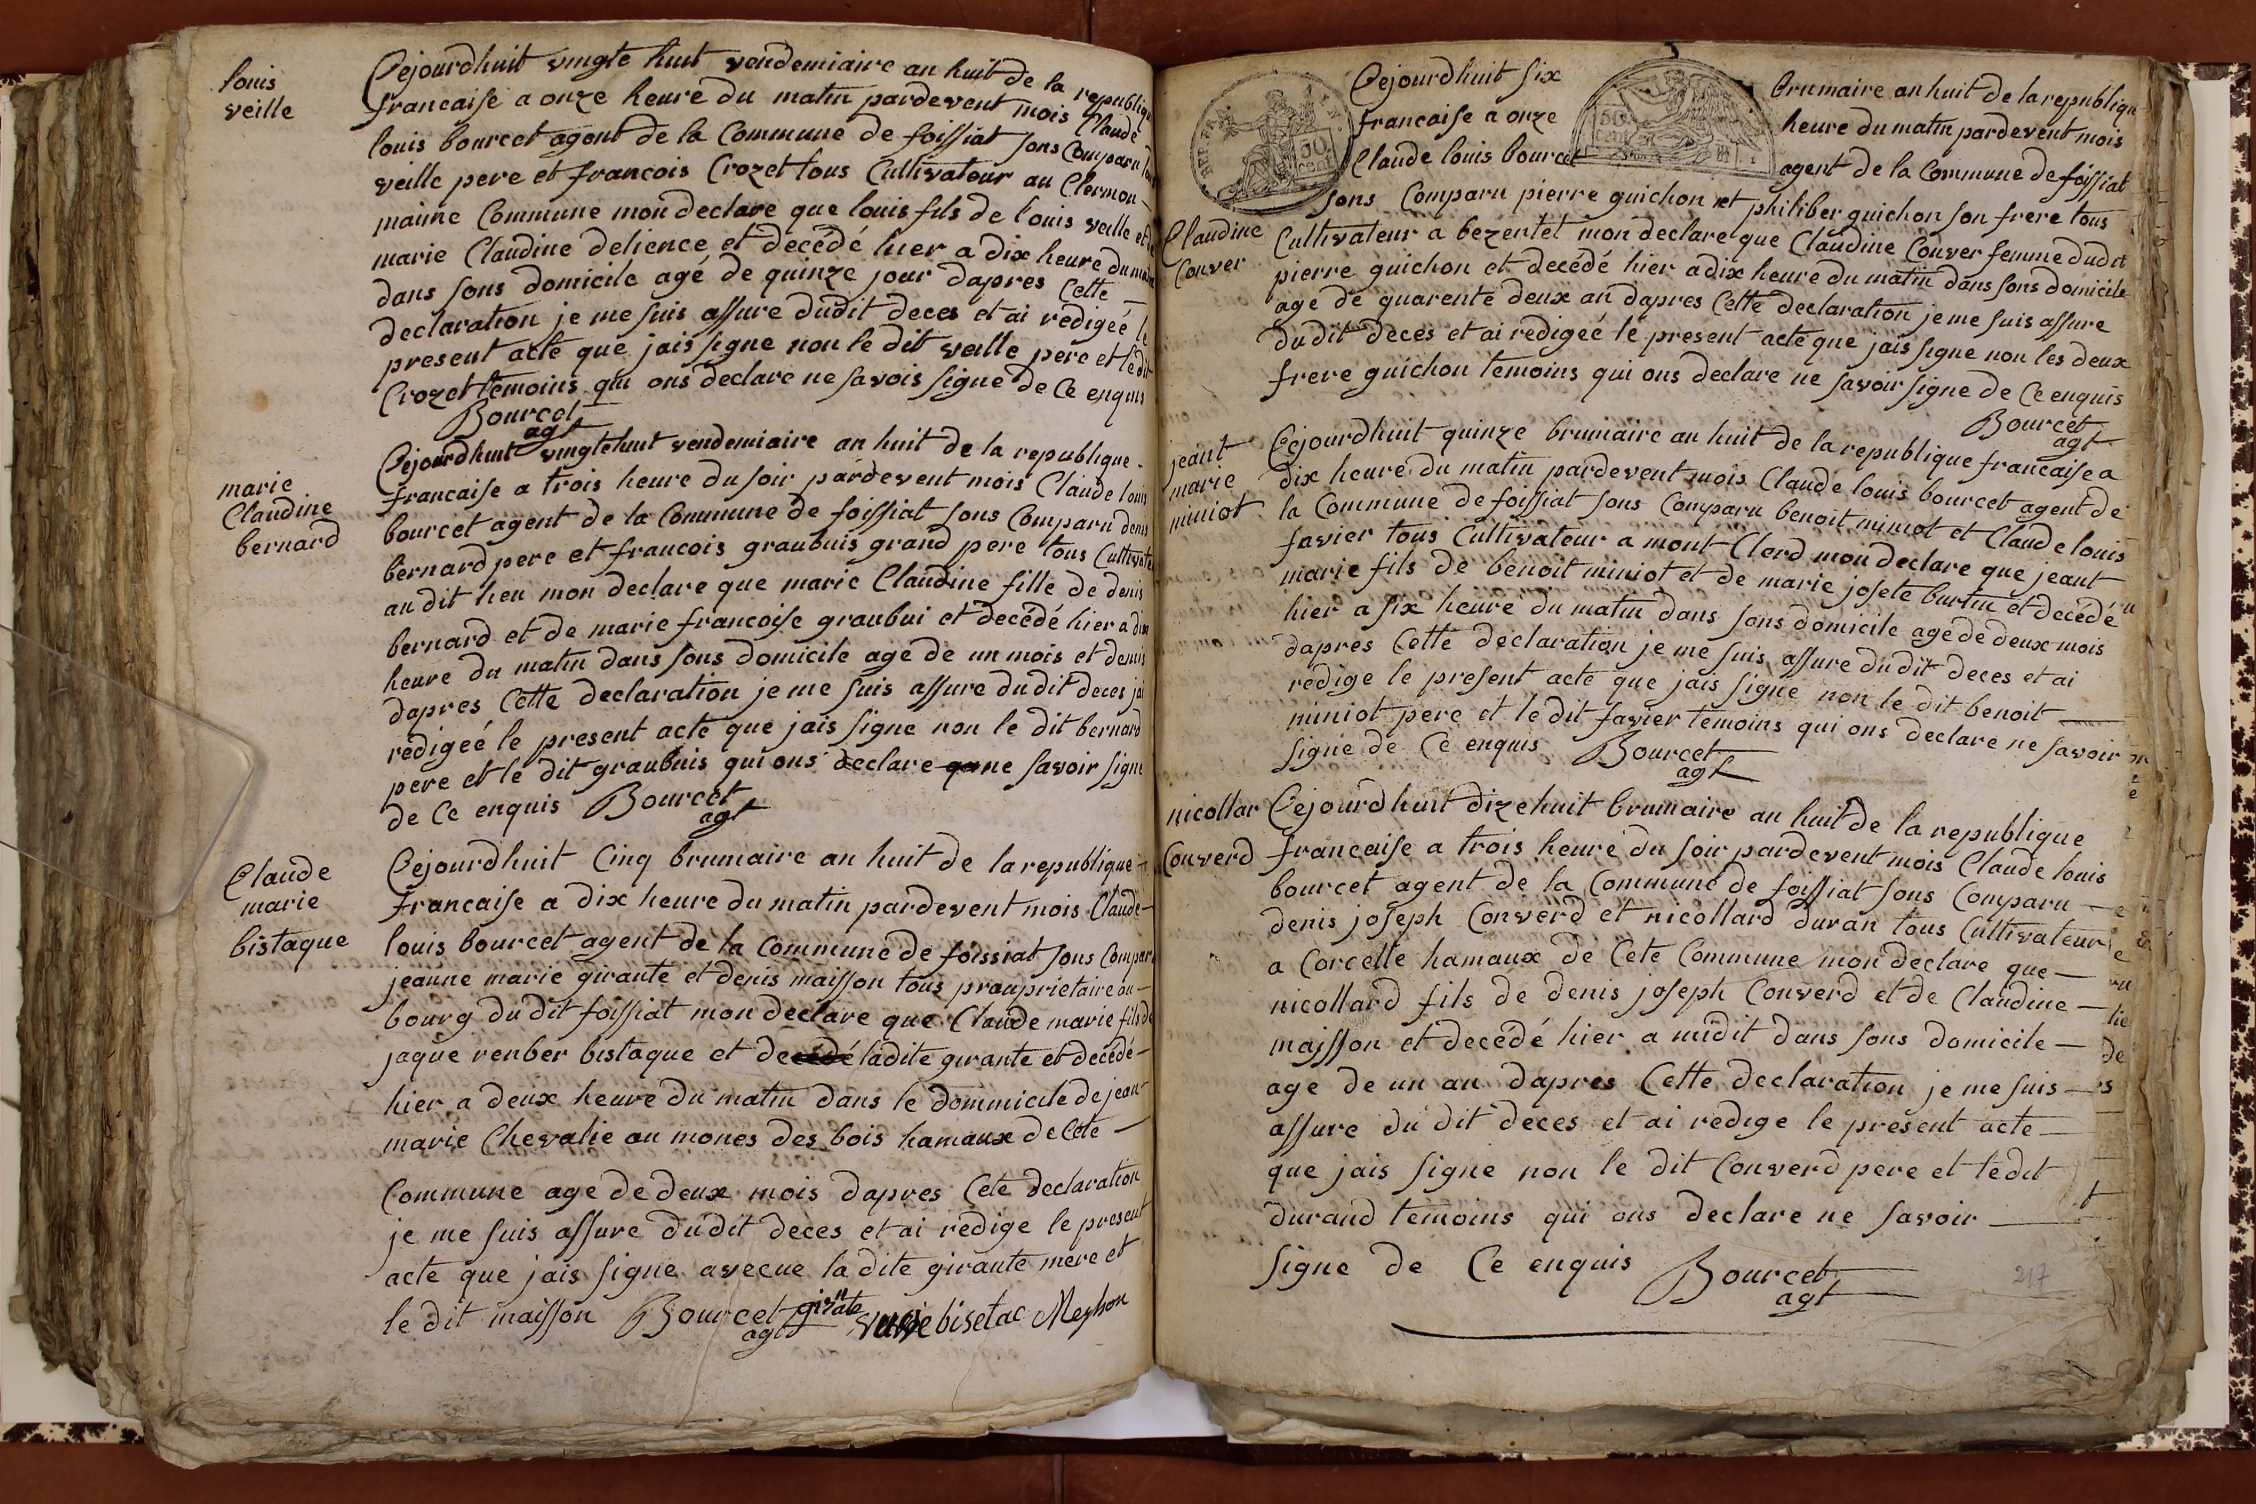 louis
veille
Cejourdhuit vingte huit vendemiaire an huit de la republique
francaise a onze heure du matin pardevent mois Claude
louis bourcet agent de la Commune de foissiat sons Comparu
veille pere et francois Crozet tous Cultivateur au Clermon
maime Commune mon declare que louis fils de louis veille et
marie Claudine delience et decédé hier a dix heure du matin
dans sons domicile agé de quinze jour dapres Cette
declaration je me suis assure dudit deces et ai redigeé le
present acte que jais signe non le dit veille pere et ledit
Crozet temoins qui ons declare ne savois signe de Ce enquis
Bourcet
agt
marie
Claudine
bernard
Cejourdhuit vingtehuit vendemiaire an huit de la republique
francaise a trois heure du soir pardevent mois Claude louis
bourcet agent de la Commune de foissiat sons Comparu denis
bernard pere et francois graubuis grand pere tous Cultivate
au dit lieu mon declare que marie Claudine fille de denis
bernard et de marie francoise graubui et decédé hier a dix
heure du matin dans sons domicile age de un mois et demis
dapres Cette declaration je me suis assure dudit deces jai
redigeé le present acte que jais signe non le dit bernard
pere et le dit graubuis qui ons declare ne savoir signe
de Ce enquis Bourcet
agt
Claude
marie
bistaque
Cejourdhuit Cinq brumaire an huit de la republique
francaise a dix heure du matin pardevent mois Claude
louis bourcet agent de la Commune de foissiat sons Compar
jeanne marie girante et denis maisson tous praupriétaire au
bourg dudit foissiat mon declare que Claude marie fils de
jaque renber bistaque et decédé ladite girante et decédé
hier a deux heure du matin dans le dommicile de jean
marie Chevalie au mones des bois hamaux de Cete
Commune age de deux mois dapres Cete declaration
je me suis assure dudit deces et ai redige le present
acte que jais signe avecue ladite girante mere et
le dit maisson Bourcet agt girate bisetac Meyhon
Cejourdhuit six brumaire an huit de la republique
francaise a onze heure du matin pardevent mois
Claude louis bourcet agent de la Commune de foissiat
50
cent
50
cent
Claudine
Conver
sons Comparu pierre guichon et philiber guichon son frere tous
Cultivateur a bezentet mon declare que Claudine Conver femme dudit
pierre guichon et decédé hier a dix heure du matin dans sons domicile
age de quarente deux an dapres Cette declaration je me suis assure
dudit deces et ai redigeé le present acte que jais signe non les deux
frere guichon temoins qui ons declare ne savoir signe de Ce enquis
Bourcet
agt
jeant
marie
miniot
Cejourdhuit quinze brumaire an huit de la republique francaise a
dix heure du matin pardevent mois Claude louis bourcet agent de
la Commune de foissiat sons Comparu benoit miniot et Claude louis
favier tous Cultivateur a mont Clerd mon declare que jeant
marie fils de benoit miniot et de marie josete burtin et decédé
hier a six heure du matin dans sons domicile age de deux mois
dapres Cette declaration je me suis assure dudit deces et ai
redige le present acte que jais signe non le dit benoit
miniot pere et le dit favier temoins qui ons declare ne savoir
signe de Ce enquis Bourcet
agt
nicollar
Converd
Cejourdhuit dizehuit brumaire an huit de la republique
francaise a trois heure du soir pardevent mois Claude louis
bourcet agent de la Commune de foissiat sons Comparu
denis joseph Converd et nicollard duran tous Cultivateur
a Corcelle hamaux de Cete Commune mon declare que
nicollard fils de denis joseph Converd et de Claudine
maisson et decédé hier a midit dans sons domicile
age de un an dapres Cette declaration je me suis
assure du dit deces et ai redige le present acte
que jais signe non le dit Converd pere et ledit
durand temoins qui ons declare ne savoir
signe de Ce enquis Bourcet
agt
217